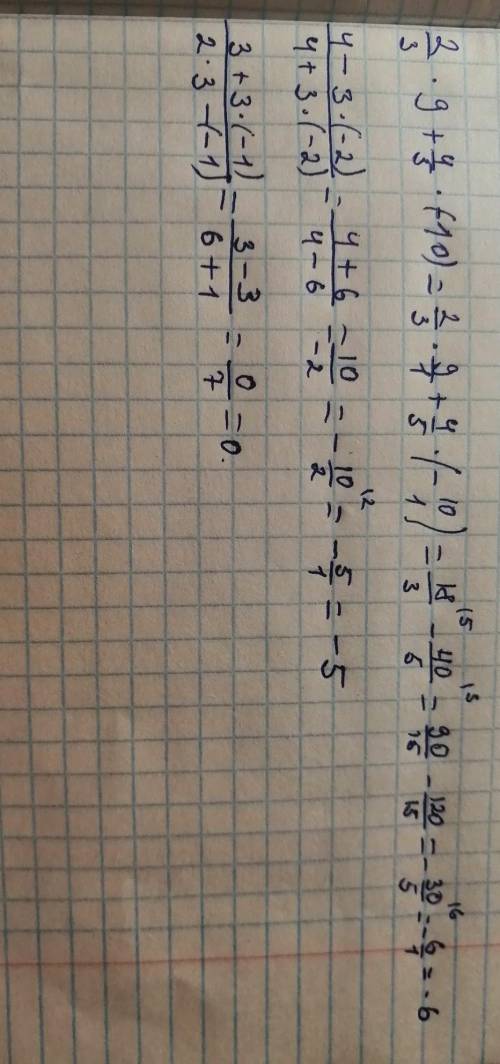 2/3 · 9 + 4/5 · (-10) = 2/3 · 9/1 + 4/5 · (- 10/1) = 18/3 |5 - 40/5 |3 = 90/15 - 120/15 = - 30/5 |6 = - 6/1 = -6
4 - 3·(-2) / 4 + 3·(-2) = 4 + 6 / 4 - 6 = 10/-2 = - 10/2 |2 = - 5/1 = - 5
3 + 3·(-1) / 2·3 - (-1) = 3 - 3 / 6 + 1 = 0/7 = 0.